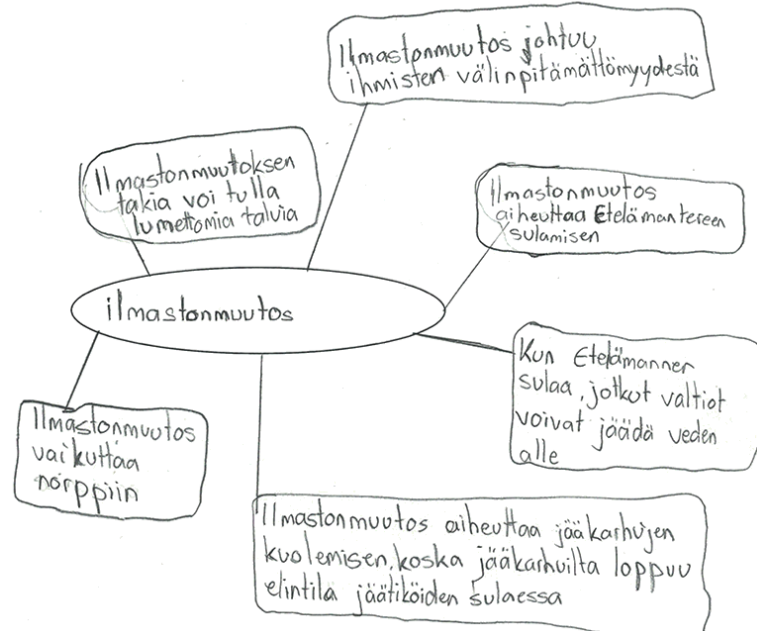 Ilmastonmuutos johtuu
ihmisten välinpitämättömyydestä
Ilmastonmuutoksen
takia voi tulla
lumettomia talvia
Ilmastonmuutos
aiheuttaa Etelämantereen
sulamisen
ilmastonmuutos
Kun Etelämanner
sulaa, jotkut valtiot
voivat jäädä veden
alle
Ilmastonmuutos
vaikuttaa
norppiin
Ilmastonmuutos aiheuttaa jääkarhujen
kuolemisen, koska jääkarhuilta loppuu
elintila jäätiköiden sulaessa